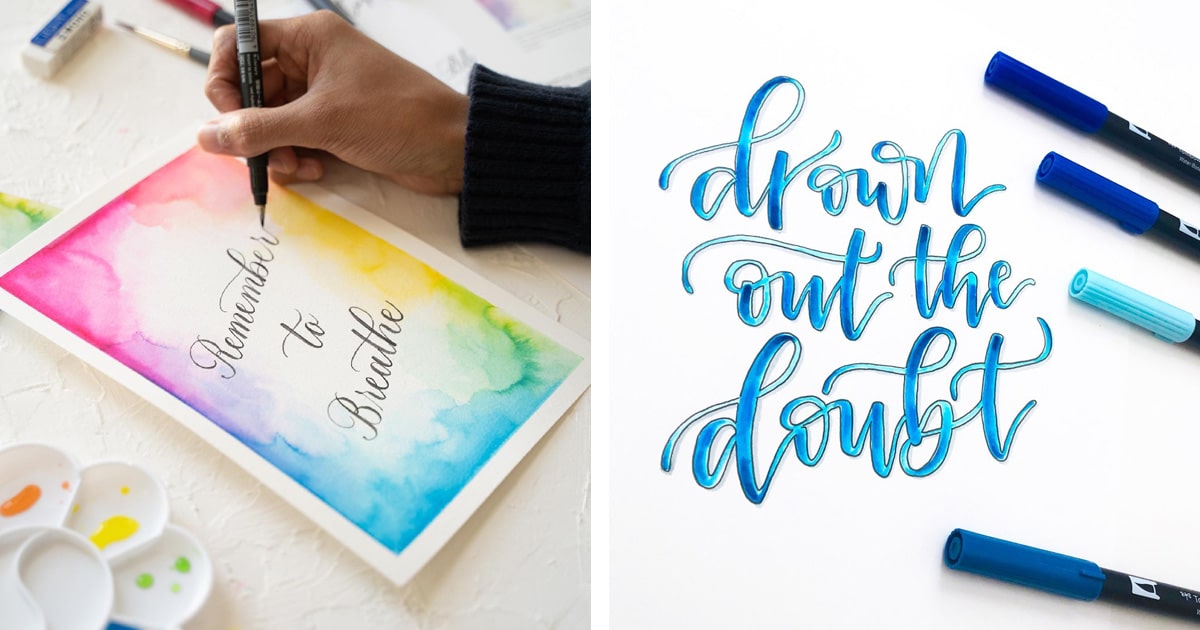 Remember
to
Breathe
drown
out the
doubt